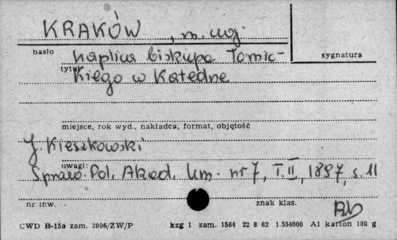 KRAKÓW, m. woj.
hasło
sygnatura
kaplica biskupa Tomic-
tytuł
kiego w Katedrze
miejsce, rok wyd., nakładca, format, objętość
J. Kieszkowski
uwagi:
Spraw. Pol. Akad. Um. nr 7, T. II, 1897, s. 11
nr inw.
znak klas.
CWD B-15a zam. 2006/ZW/P kzg 1 zam. 1564 22 8 62 1.554000 A1 karton 180 g